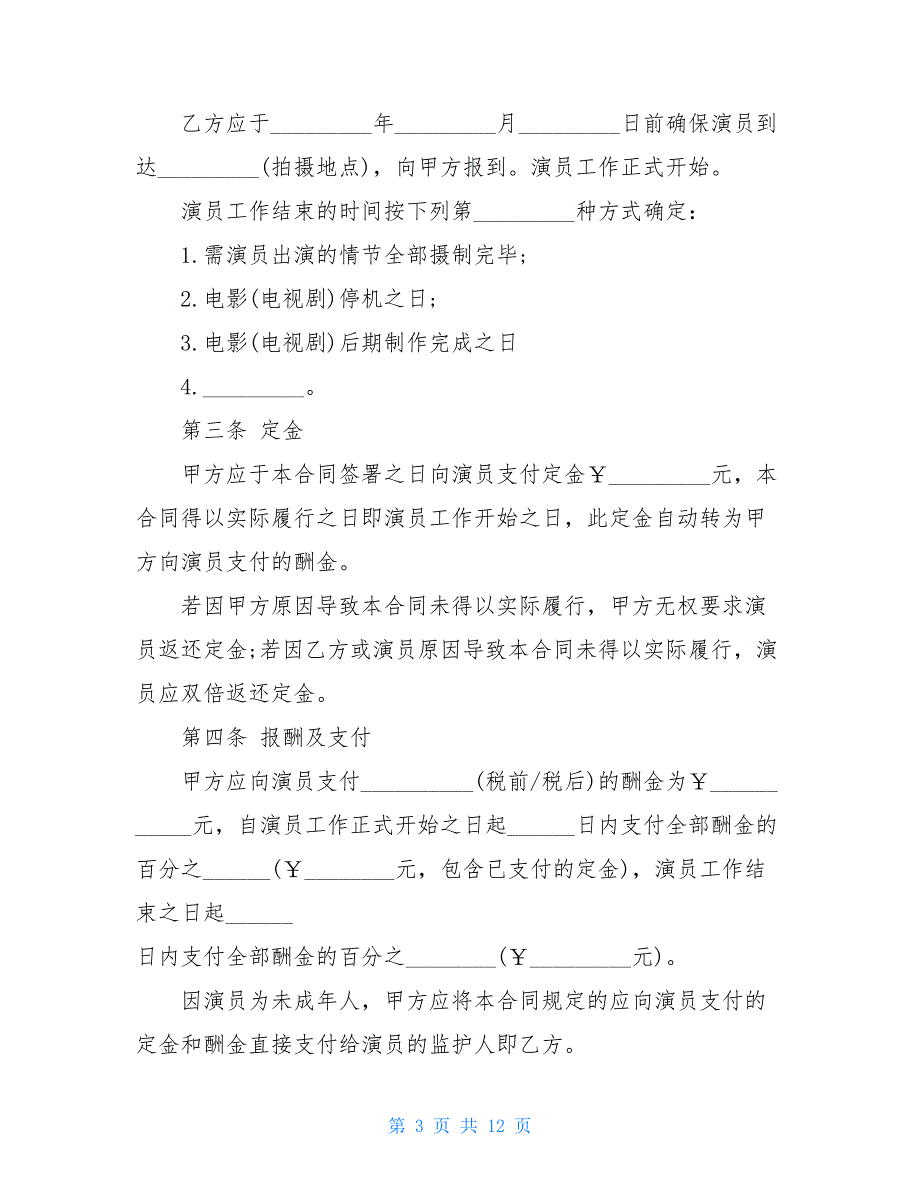 乙方应于_________年_________月_________日前确保演员到
达_________(拍摄地点)，向甲方报到。演员工作正式开始。
演员工作结束的时间按下列第_________种方式确定：
1.需演员出演的情节全部摄制完毕;
2.电影(电视剧)停机之日;
3.电影(电视剧)后期制作完成之日
4._________。
第三条 定金
甲方应于本合同签署之日向演员支付定金￥_________元，本
合同得以实际履行之日即演员工作开始之日，此定金自动转为甲
方向演员支付的酬金。
若因甲方原因导致本合同未得以实际履行，甲方无权要求演
员返还定金;若因乙方或演员原因导致本合同未得以实际履行，演
员应双倍返还定金。
第四条 报酬及支付
甲方应向演员支付__________(税前/税后)的酬金为￥______
_____元，自演员工作正式开始之日起______日内支付全部酬金的
百分之______(￥________元，包含已支付的定金)，演员工作结
束之日起______
日内支付全部酬金的百分之________(￥_________元)。
因演员为未成年人，甲方应将本合同规定的应向演员支付的
定金和酬金直接支付给演员的监护人即乙方。
第 3 页 共 12 页